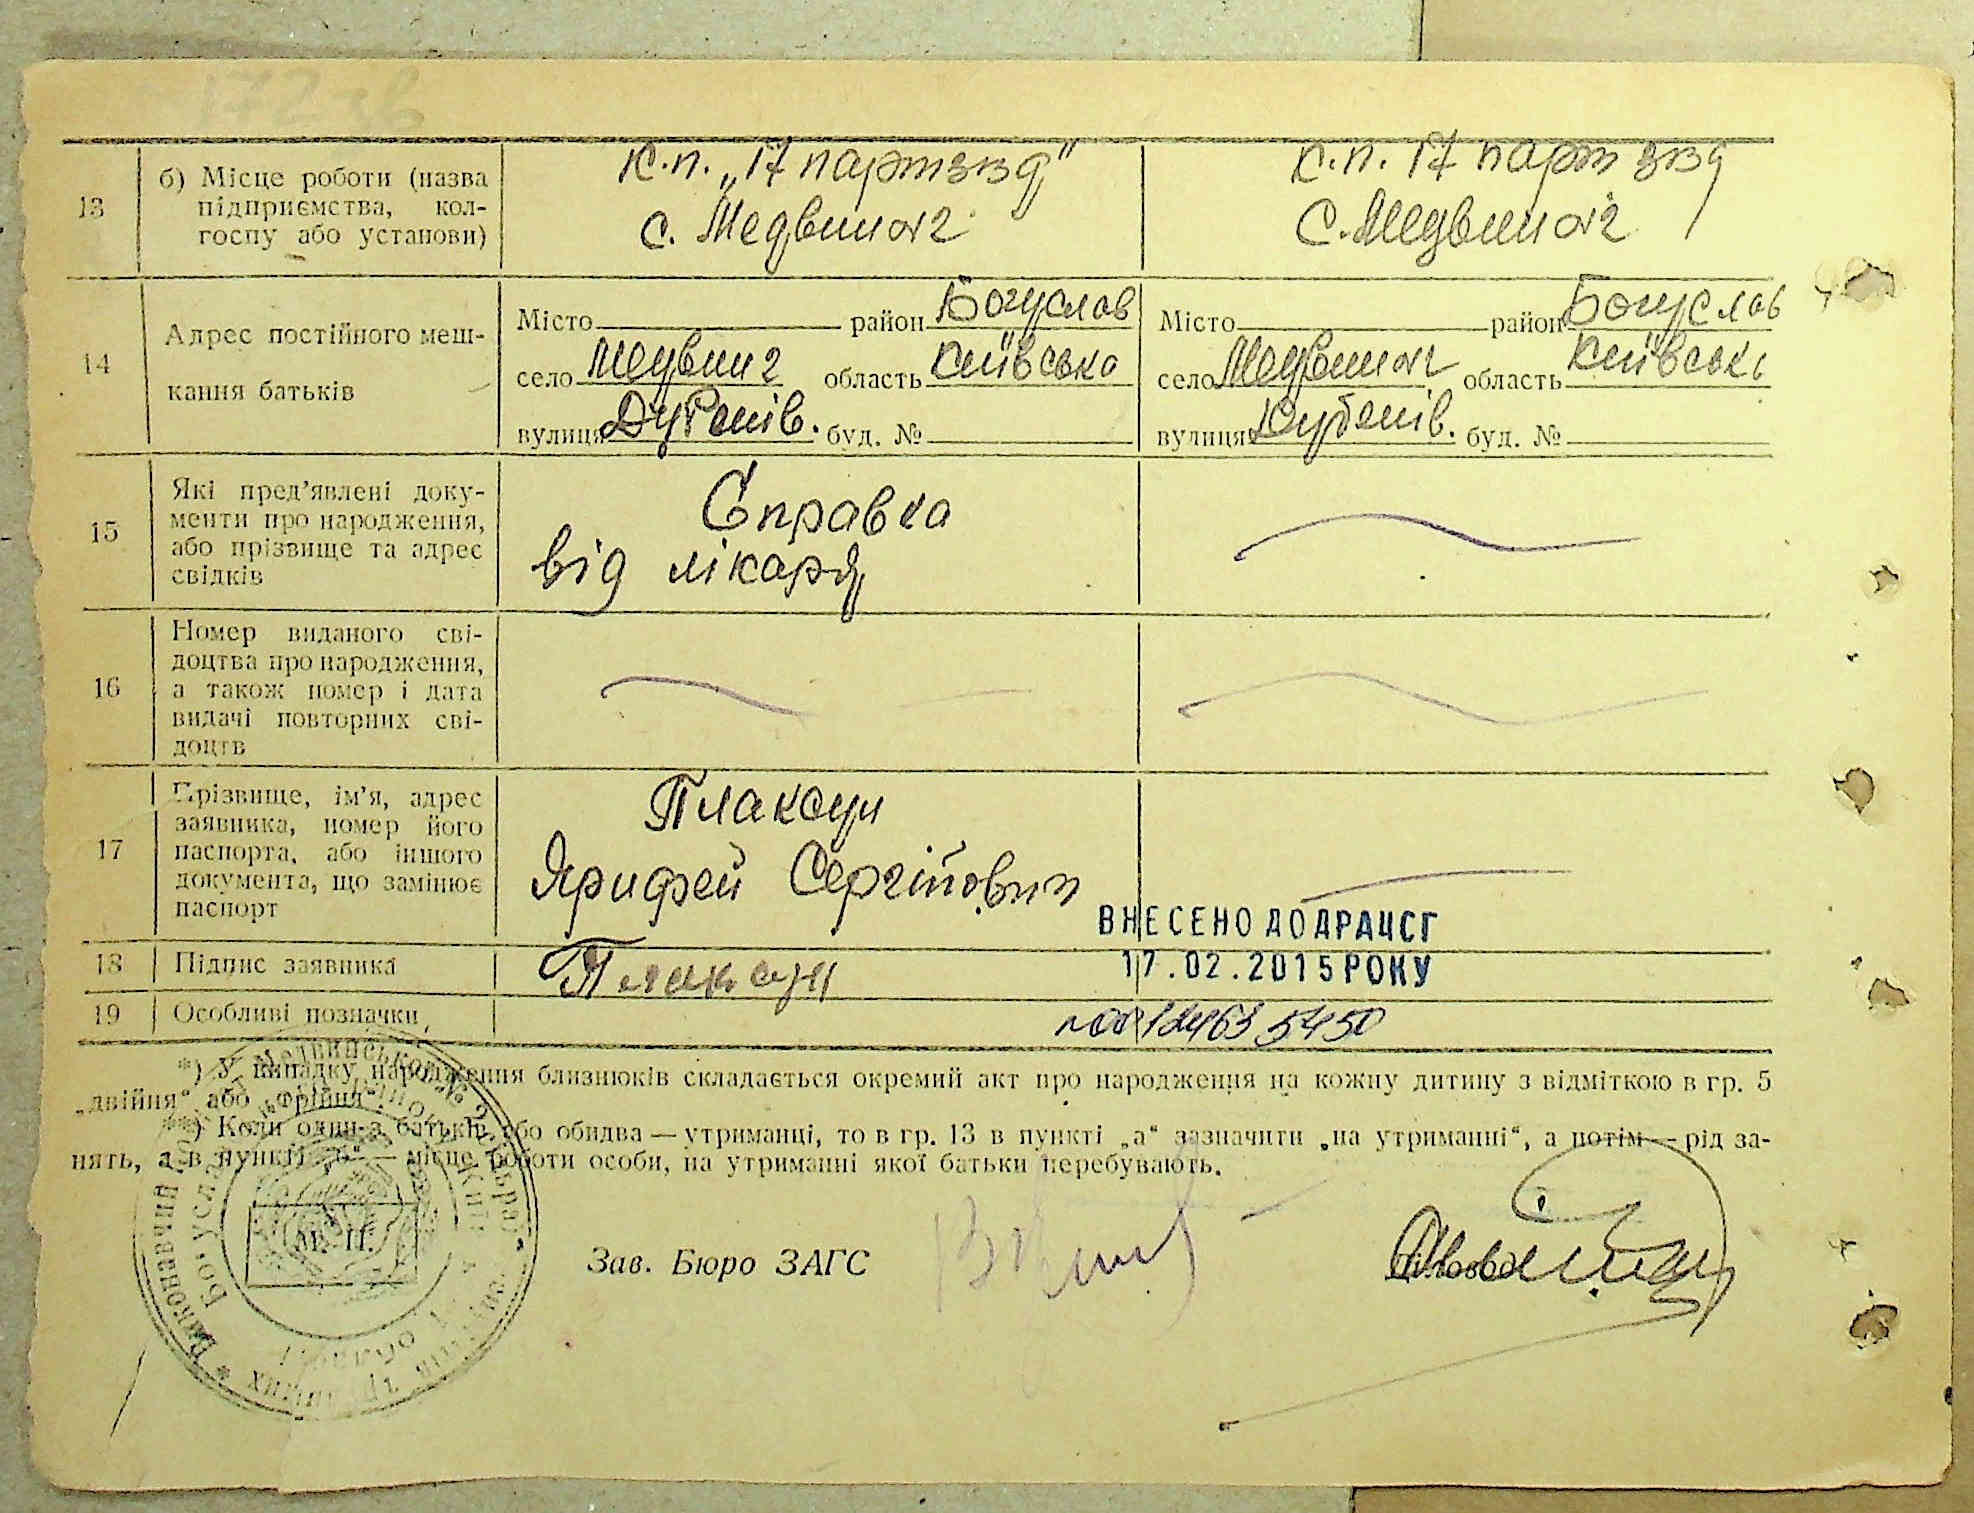 13
б) Місце роботи (назва підприємства, кол-
госпу або установи)
к.п. „17 партззд"
с. Медвин №2
к.п. 17 партззд
с. Медвин №2
14
Адрес постійного меш-
кання батьків
Місто район Богуслав
село Медвин 2 область Київська
вулиця буд. №
Місто район Богуслав
село Медвин №2 область Київськ
вулиця буд. №
15
Які пред'явлені доку-
менти про народження,
або прізвище та адрес
свідків
Справка
від лікаря
16
Номер виданого сві-
доцтва про народження,
а також номер і дата
видачі повторних сві-
доцтв
17
Прізвище, ім'я, адрес
заявника, номер його
паспорта, або іншого
документа, що замінює
паспорт
Плаксун
Сергійович
ВНЕСЕНО ДО ДРАЦСГ
17.02.2015 РОКУ
18
Підпис заявника
Плаксун
19
Особливі позначки
*) У випадку народження близнюків складається окремий акт про народження на кожну дитину з відміткою в гр. 5
„двійня" або „трійня".
**) Коли один з батьків або обидва — утриманці, то в гр. 13 в пункті „а" зазначити „на утриманні", а потім — рід за-
нять, а в пункті „б" — місце роботи особи, на утриманні якої батьки перебувають.
М. П.
Зав. Бюро ЗАГС